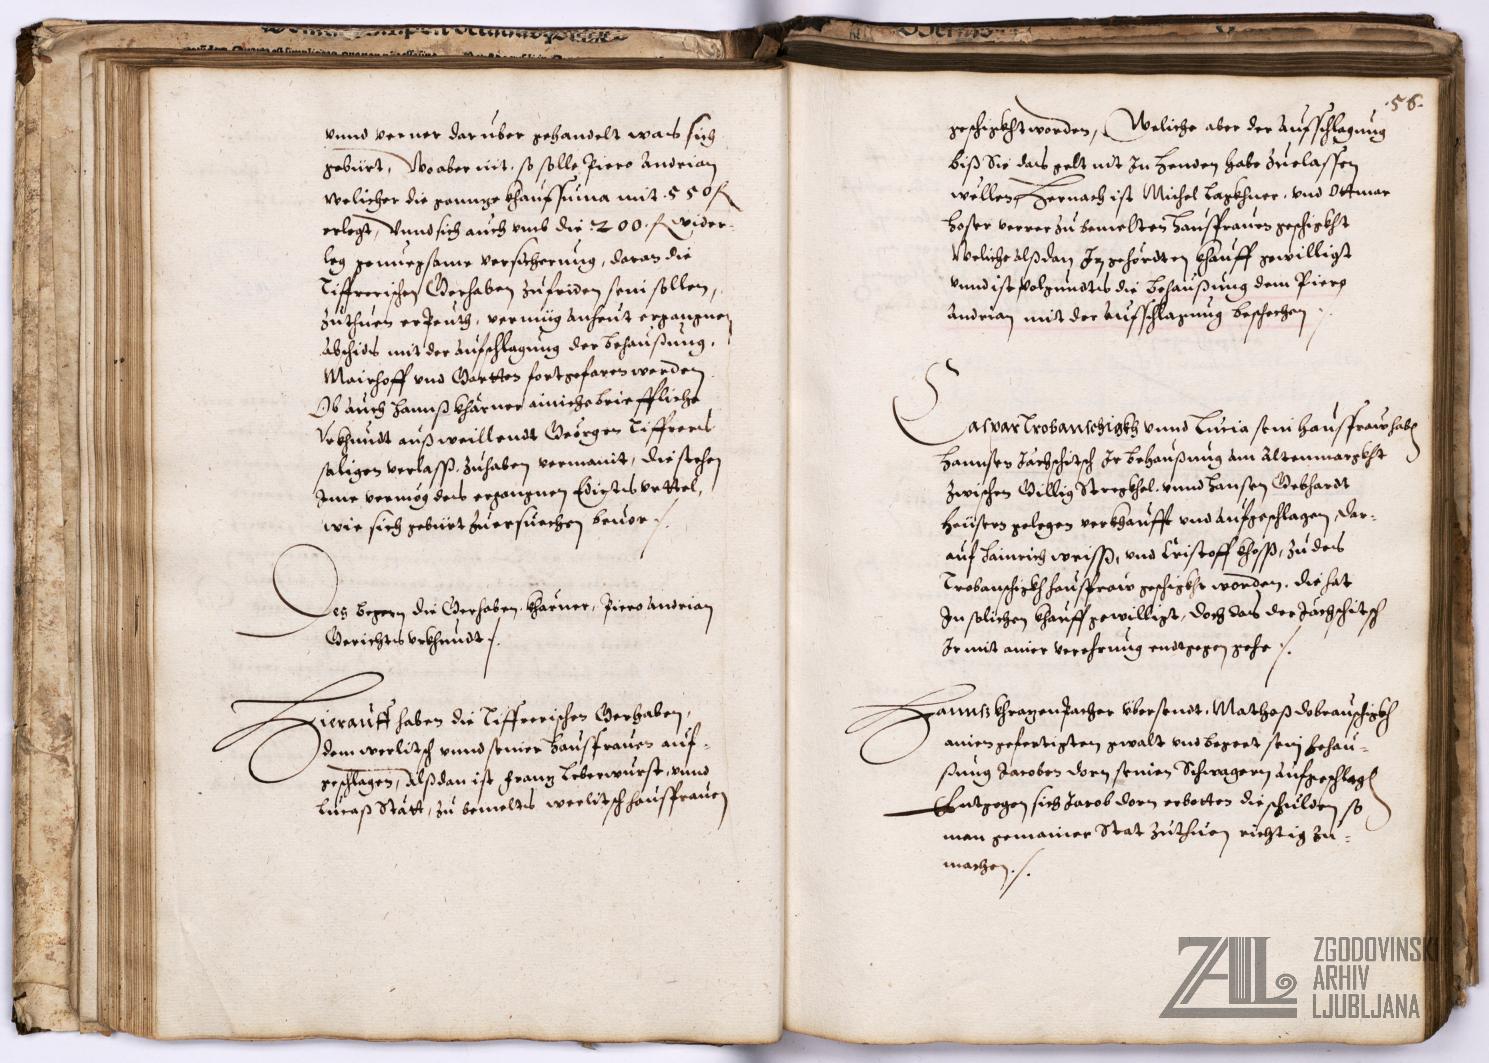 vnnd verner darüber gehandelt was sich
gebürt, Wo aber nit, so solle Piero Andrian
welicher die gannze khauffsuma mit 550 fl
erlegt, Vnnd sich auch vmb die 200. fl wider-
leg genuegsame versicherung, daran die
Tiffrerischen Gerhaben zufriden sein sollen,
zuthuen erpeutt, vermüg anheut ergangnen
Abschids mit der aufschlagung der behaußung,
Mairhoff vnd Gartten fortgefaren werden
Ob auch Hannß Kharner ainiche brieffliche
Vrkhundt auß weillendt Georgen Tiffrers
saligen verlass. zuhaben vermaint, die stehen
Ime vermög des ergangnen Edicts
wie sich gebürt zuersuechen beuor ./.
Des begern die Gerhaben, Kharner, Piero Andrian
Gerichts vrkhundt ./.
Hierauff haben die Tiffrerischen Gerhaben,
dem Werlitsch vnnd seiner Hausfrauen auf-
geschlagen, Alßdan ist Franz Leberwurst, vnnd
Lucaß Statt, zu bemelts Werlitsch hausfrauen
.56.
geschigkht worden, Weliche aber der Aufschlagung
biß Sie das gelt nit In henden habe zuelassen
wellen, Hernach ist Michel Lagkhner, vnd Ottmar
Hofer verrer zu bemelten hausfrauen geschigkht
Weliche alßdan In gehördten khauff gewilligt
vnnd ist volgundts die behaußung dem Piero
Andrian mit der Aufschlagung beschechen ./.
Caspar Trobantschigkh vnnd Lucia sein hausfraw haben
Hannsen Jachschitsch Ir behaußung am Altenmargkht
zwischen Gillig Stregkhel, vnnd Hansen Gebhardt
heüsern gelegen verkhaufft vnd aufgeschlagen, Dar-
auf Hainrich Weiss, vnd Cristoff Khoss, zu des
Trobantschigkh hausfraw geschigkht worden, die hat
In solichen khauff gewilligt, doch das der Jachschitsch
Ir mit ainer verehrung endtgegen gehe ./.
Hannß Khrayenpacher vbersendt, Mathaß Dobrauschigkh
ainen gefertigten gwalt vnd begert sein behau-
ßung Jacoben Dorn seinen Schwagern aufgeschlagen
Entgegen sich Jacob Dorn erbotten die schulden so
man gemainer Stat zuthuen richtig zu-
machen ./.
ZAL ZGODOVINSKI
ARHIV
LJUBLJANA